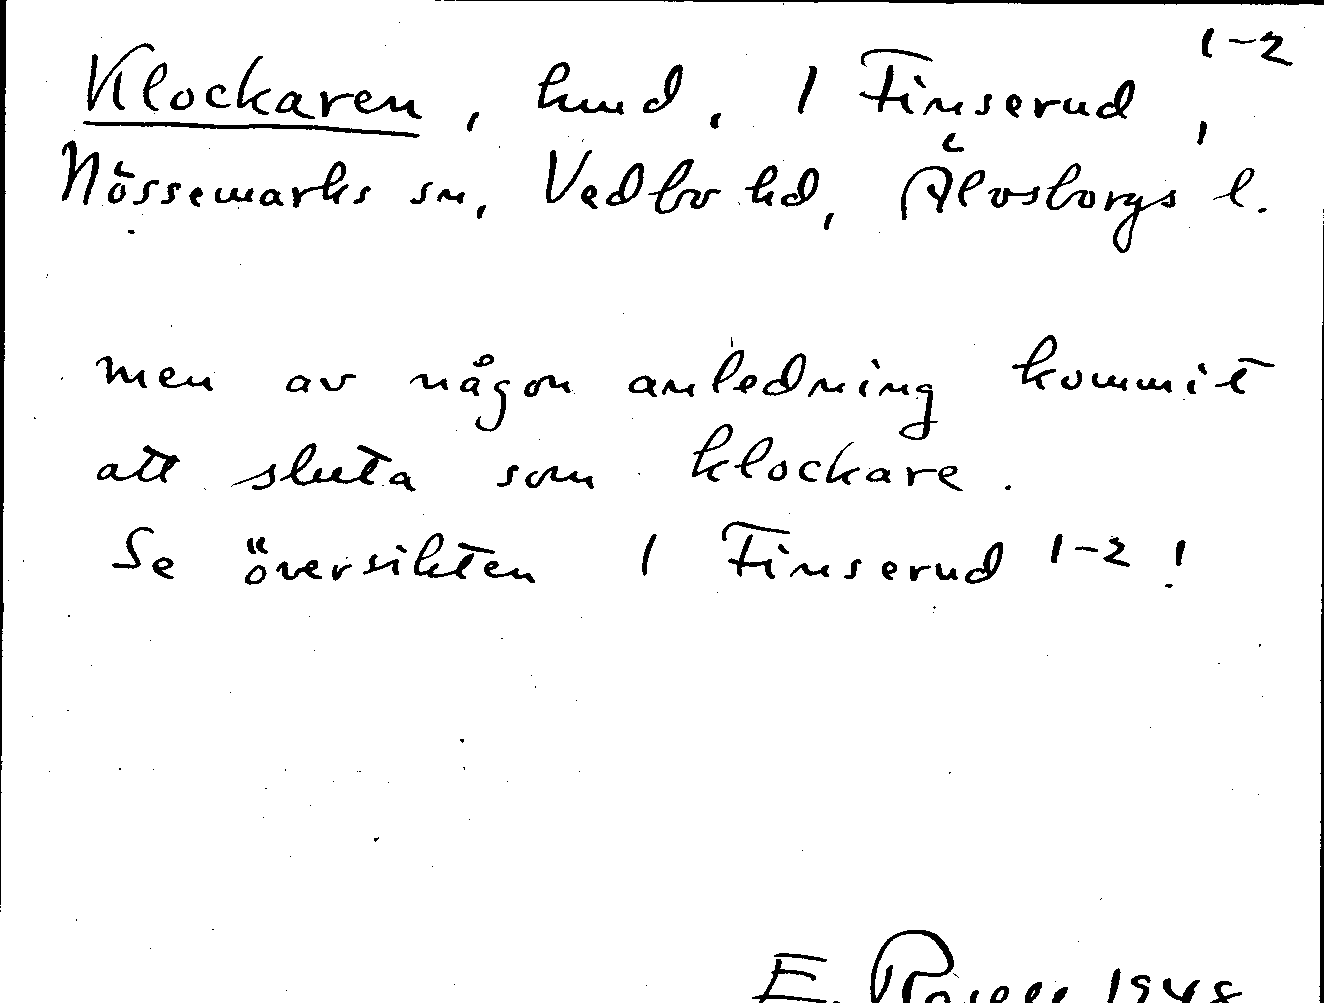 Klockaren, hmd, 1 Finserud 1-2,
Nössemarks sn, Vedbo hd, Älvsborgs l.
men av någon anledning kommit
att sluta som klockare.
Se översikten 1 Finserud 1-2!
E. 1948